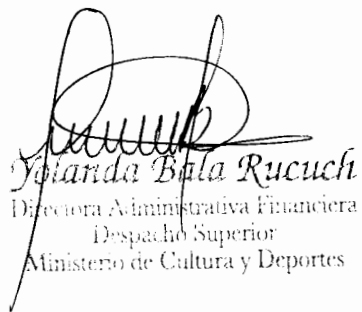 Yolanda Bala Rucuch
Directora Administrativa Financiera
Despacho Superior
Ministerio de Cultura y Deportes